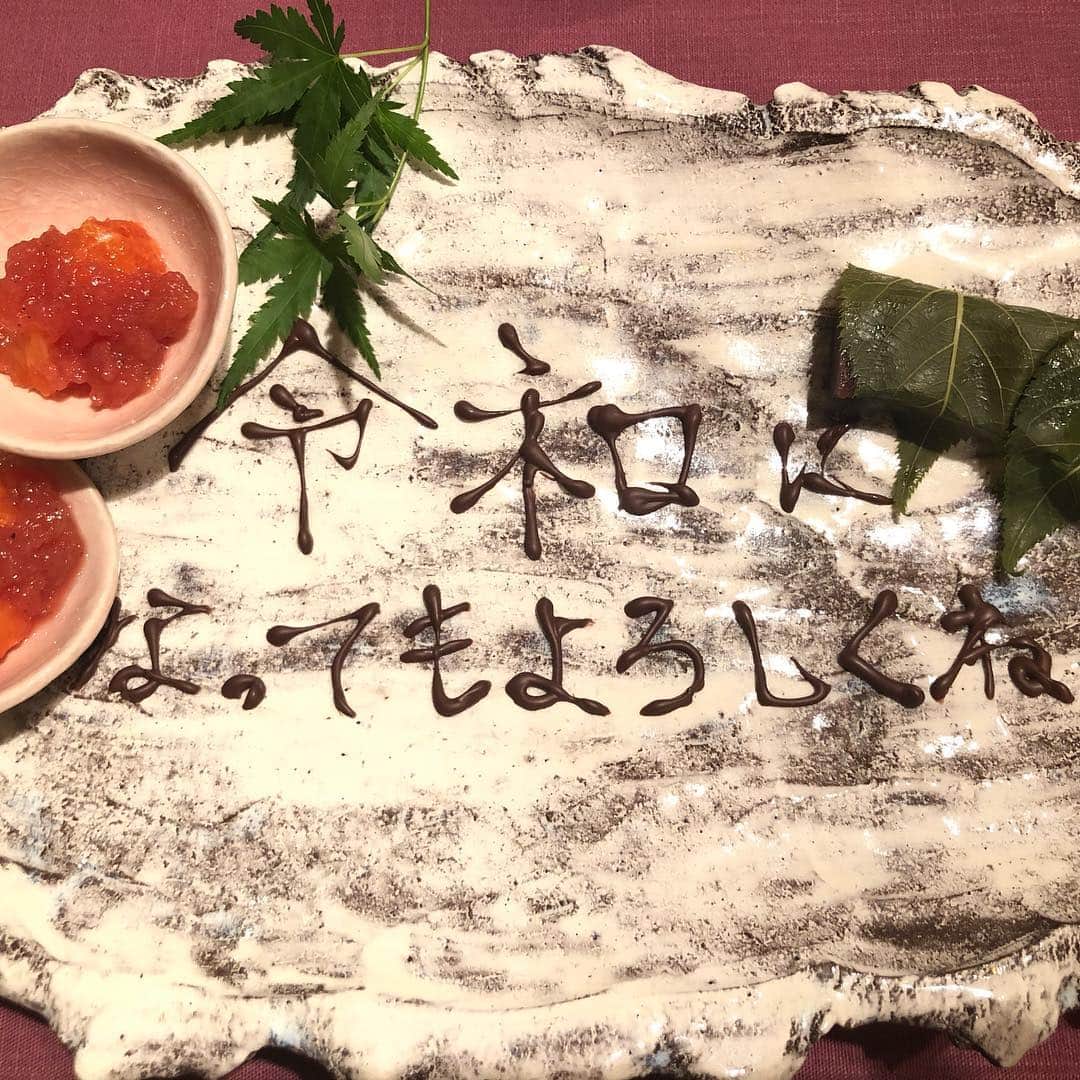 令和に
なってもよろしくね